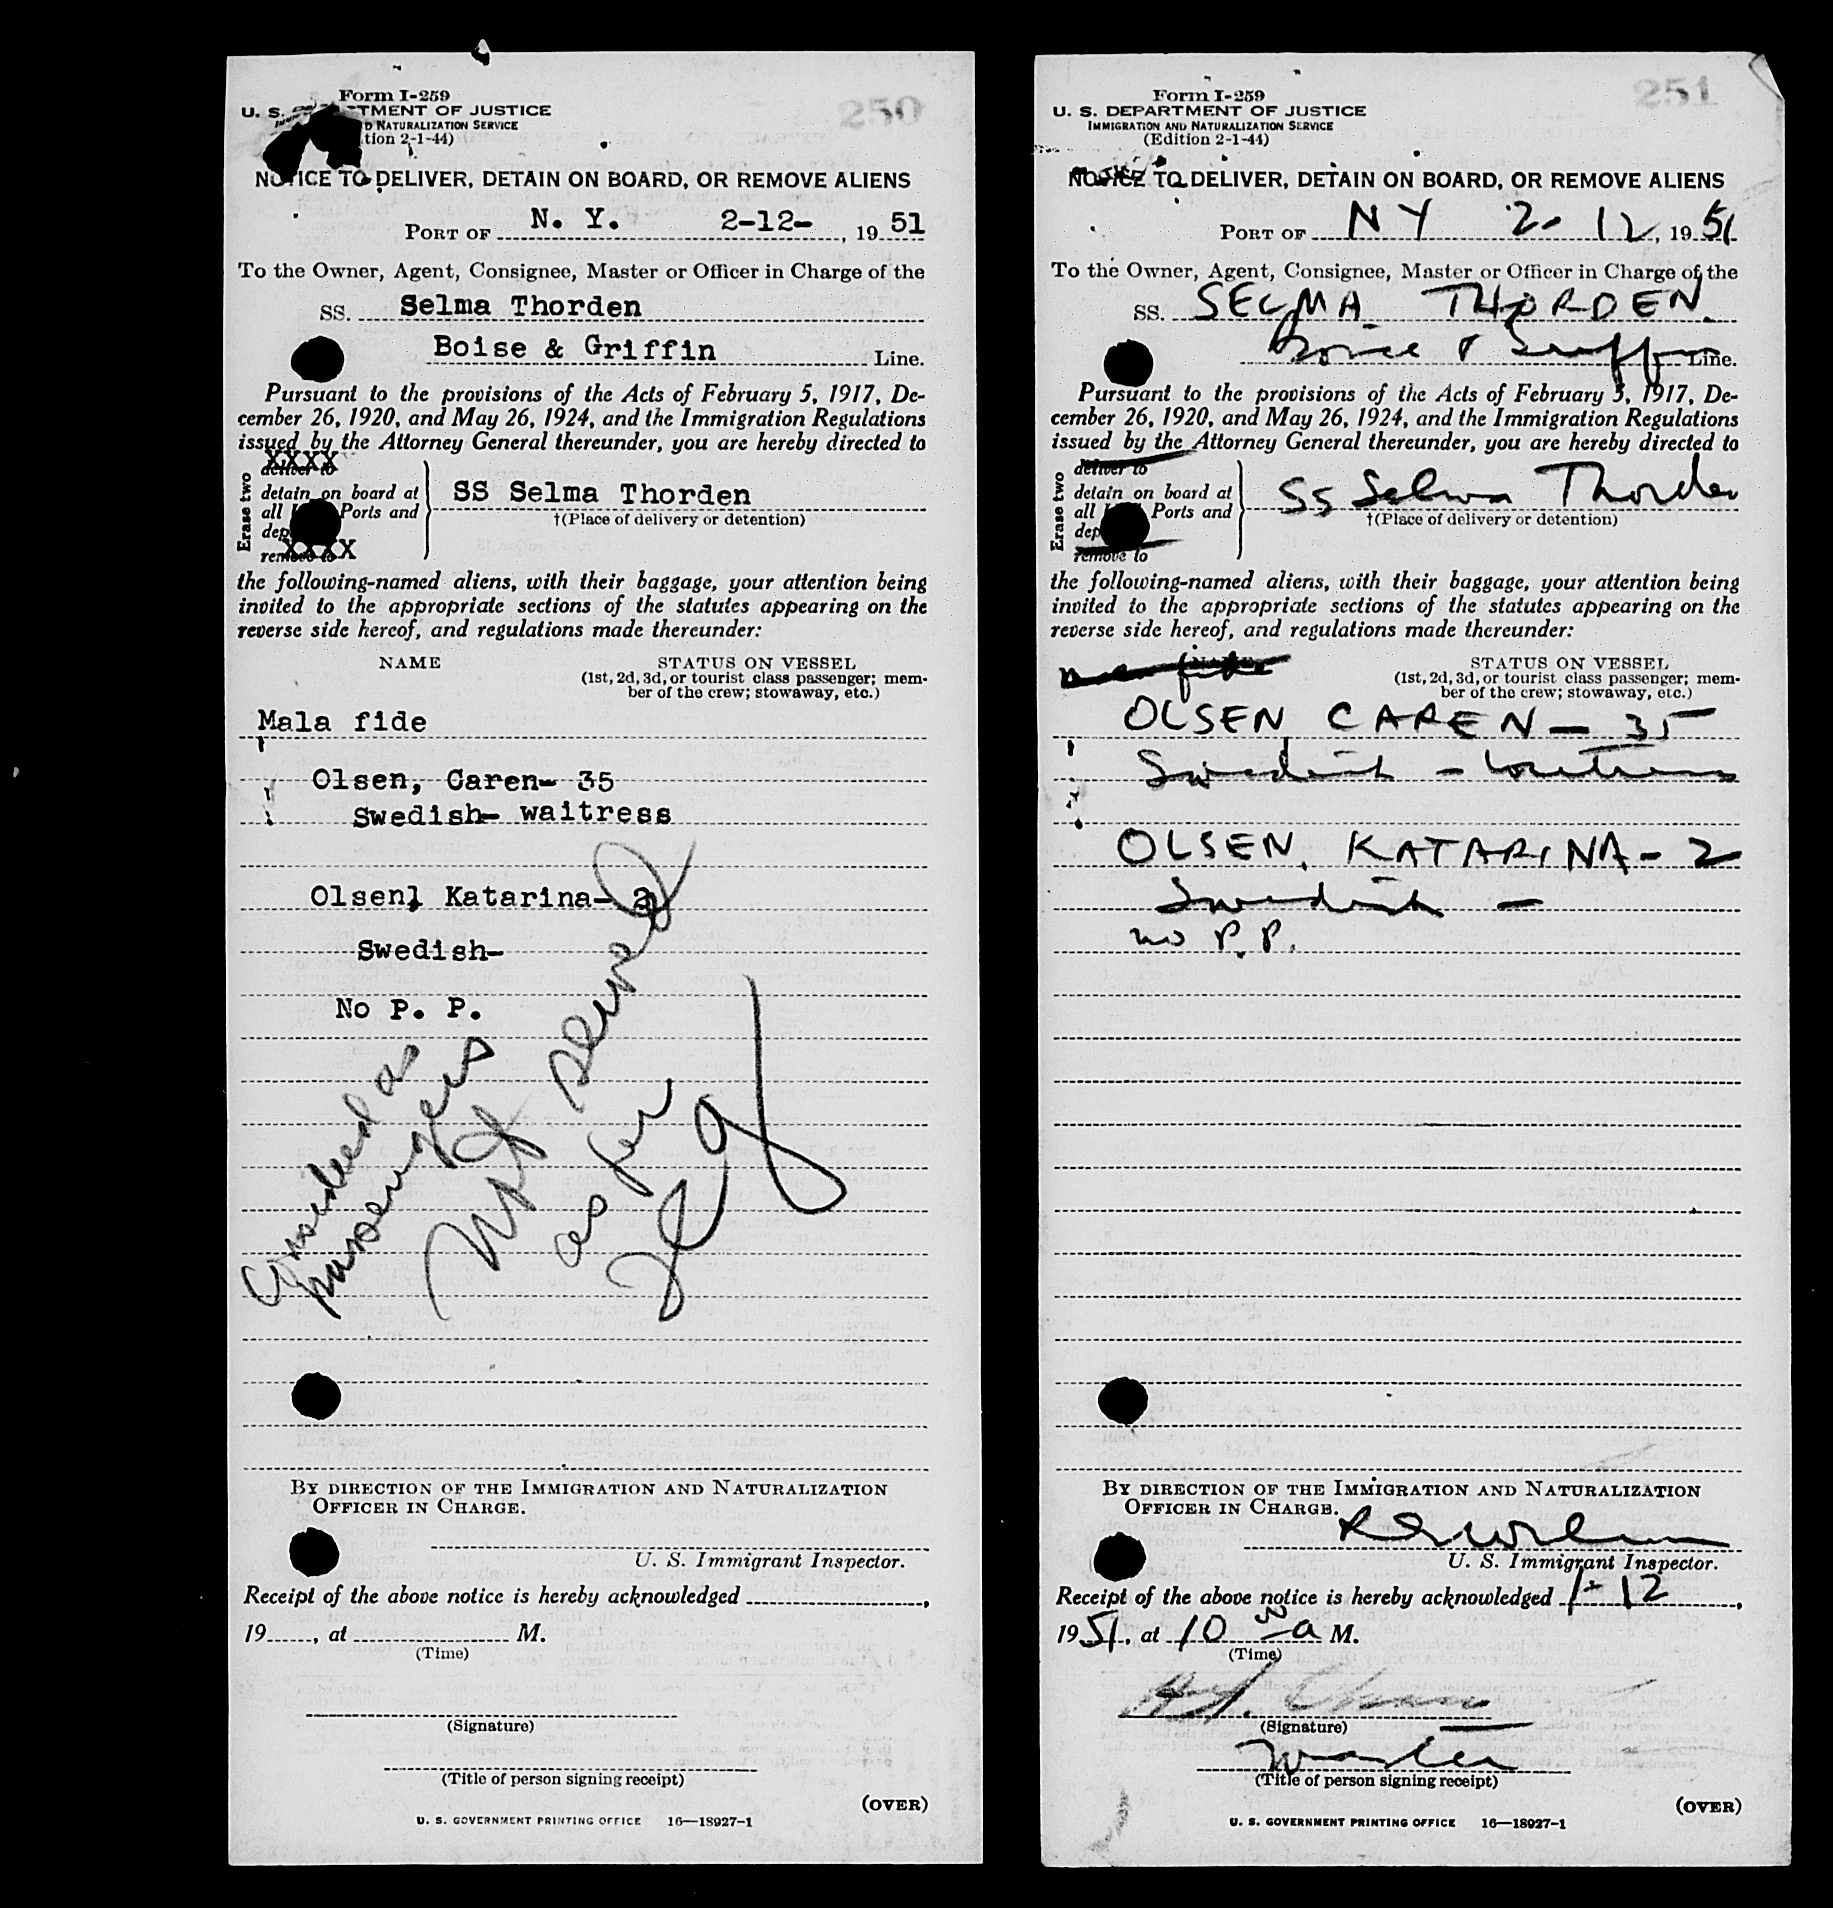 250
Form I-259
U. S. DEPARTMENT OF JUSTICE
D NATURALIZATION SERVICE
tion 2-1-44)
NOTICE TO DELIVER, DETAIN ON BOARD, OR REMOVE ALIENS
PORT OF N. Y. 2-12-, 19 51
To the Owner, Agent, Consignee, Master or Officer in Charge of the
SS. Selma Thorden
Boise & Griffin Line.
Pursuant to the provisions of the Acts of February 5, 1917, De-
cember 26, 1920, and May 26, 1924, and the Immigration Regulations
issued by the Attorney General thereunder, you are hereby directed to
Erase two
XXXX
deliver to
detain on board at
all Ports and
dep
remove to
XXXX
SS Selma Thorden
†(Place of delivery or detention)
the following-named aliens, with their baggage, your attention being
invited to the appropriate sections of the statutes appearing on the
reverse side hereof, and regulations made thereunder:
NAME STATUS ON VESSEL
(1st, 2d, 3d, or tourist class passenger; mem-
ber of the crew; stowaway, etc.)
Mala fide
Olsen, Caren- 35
Swedish- waitress
Olsen, Katarina- 2
Swedish-
No P. P.
Considered as
passengers
Not served
as per
By direction of the Immigration and Naturalization
Officer in Charge.
U. S. Immigrant Inspector.
Receipt of the above notice is hereby acknowledged ,
19 , at M.
(Time)
(Signature)
(Title of person signing receipt)
(OVER)
U. S. GOVERNMENT PRINTING OFFICE 16—18927-1
251
Form I-259
U. S. DEPARTMENT OF JUSTICE
IMMIGRATION AND NATURALIZATION SERVICE
(Edition 2-1-44)
NOTICE TO DELIVER, DETAIN ON BOARD, OR REMOVE ALIENS
PORT OF NY 2-12, 1951
To the Owner, Agent, Consignee, Master or Officer in Charge of the
SS. SELMA THORDEN
Boise & Griffin Line.
Pursuant to the provisions of the Acts of February 5, 1917, De-
cember 26, 1920, and May 26, 1924, and the Immigration Regulations
issued by the Attorney General thereunder, you are hereby directed to
Erase two
deliver to
detain on board at
all Ports and
dep
remove to
SS Selma Thorden
†(Place of delivery or detention)
the following-named aliens, with their baggage, your attention being
invited to the appropriate sections of the statutes appearing on the
reverse side hereof, and regulations made thereunder:
STATUS ON VESSEL
(1st, 2d, 3d, or tourist class passenger; mem-
ber of the crew; stowaway, etc.)
OLSEN CAREN - 35
Swedish - waitress
OLSEN, KATARINA - 2
Swedish -
no P.P.
By direction of the Immigration and Naturalization
Officer in Charge.
U. S. Immigrant Inspector.
Receipt of the above notice is hereby acknowledged 1-12,
1951, at 10 a M.
(Time)
(Signature)
Master
(Title of person signing receipt)
(OVER)
U. S. GOVERNMENT PRINTING OFFICE 16—18927-1